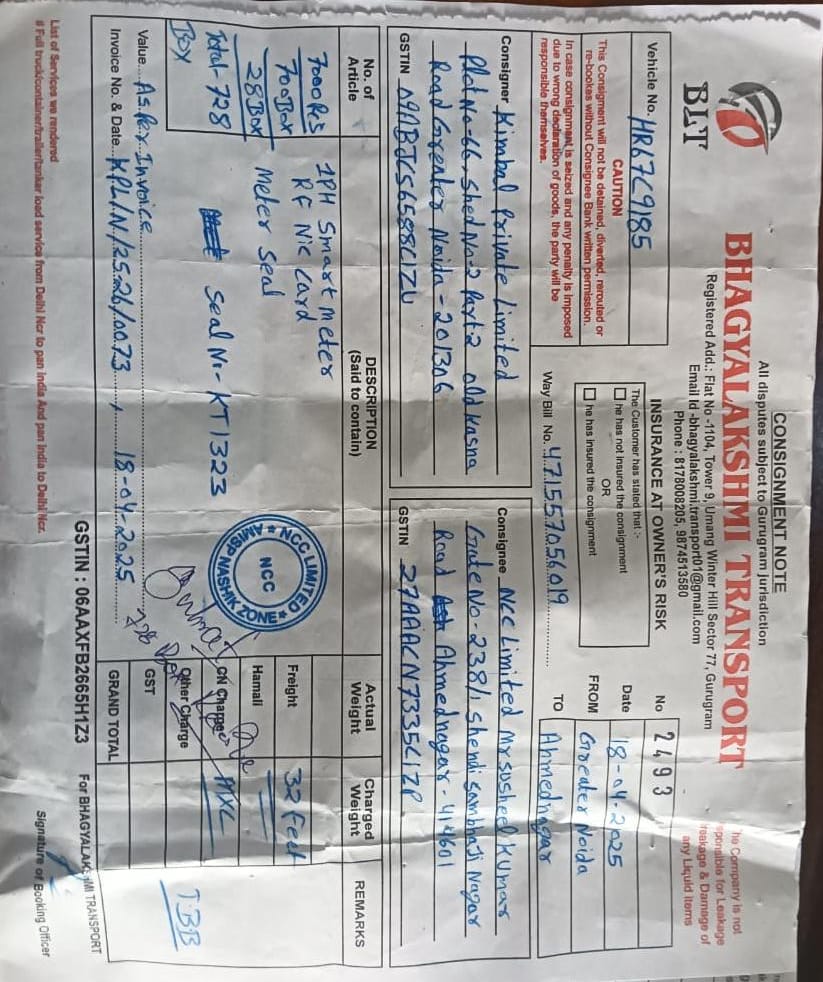 CONSIGNMENT NOTE
All disputes subject to Gurugram jurisdiction
BLT
BHAGYALAKSHMI TRANSPORT
Registered Add.: Flat No -1104, Tower 9, Umang Winter Hill Sector 77, Gurugram
Email Id -bhagyalakshmi.transport01@gmail.com
Phone : 8178008205, 9874513580
he Company is not
sponsible for Leakage
reakage & Damage of
any Liquid items
Vehicle No. HR67C9185
CAUTION
This Consignment will not be detained, diverted, rerouted or
re-bookes without Consignee Bank written permission.
In case consignment is seized and any penality is imposed
due to wrong declaration of goods, the party will be
responsible themselves.
INSURANCE AT OWNER'S RISK
The Customer has stated that :-
he has not insured the consignment
OR
he has insured the consignment
Way Bill No. 471557056019
No 2493
Date 18-04-2025
FROM Greater Noida
TO Ahmednagar
Consigner Kimbal Private Limited
Plot No-66, Shed No-2 Part2 old kasna
Road Greater Noida - 201306
GSTIN 09ABJCS6588C1ZU
Consignee NCC Limited Mr susheel Kumar
Gate No-238/1 Shendi sambhaji Nagar
Road Ahmednagar - 414601
GSTIN 27AAACN7335C1ZP
No. of Article
DESCRIPTION
(Said to contain)
Actual Weight
Charged Weight
REMARKS
700Pcs 1PH Smart meter
700Box RF Nic Card
28Box Meter Seal
Total- 728 Box
Seal Nr- KT1323
NCC LIMITED
NCC
AMISP NASHIK ZONE
728 Box
Freight 32 feet
Hamali
CN Charge MXL
Other Charge
GST
GRAND TOTAL
TBB
Value As Per Invoice
Invoice No. & Date KPL/N/25-26/0073, 18-04-2025
GSTIN : 06AAXFB2665H1Z3
For BHAGYALAKSHMI TRANSPORT
List of Services we rendered
# Full truck/container/trailer/tanker load service from Delhi Ncr to pan India And pan India to Delhi Ncr.
Signature of Booking Officer